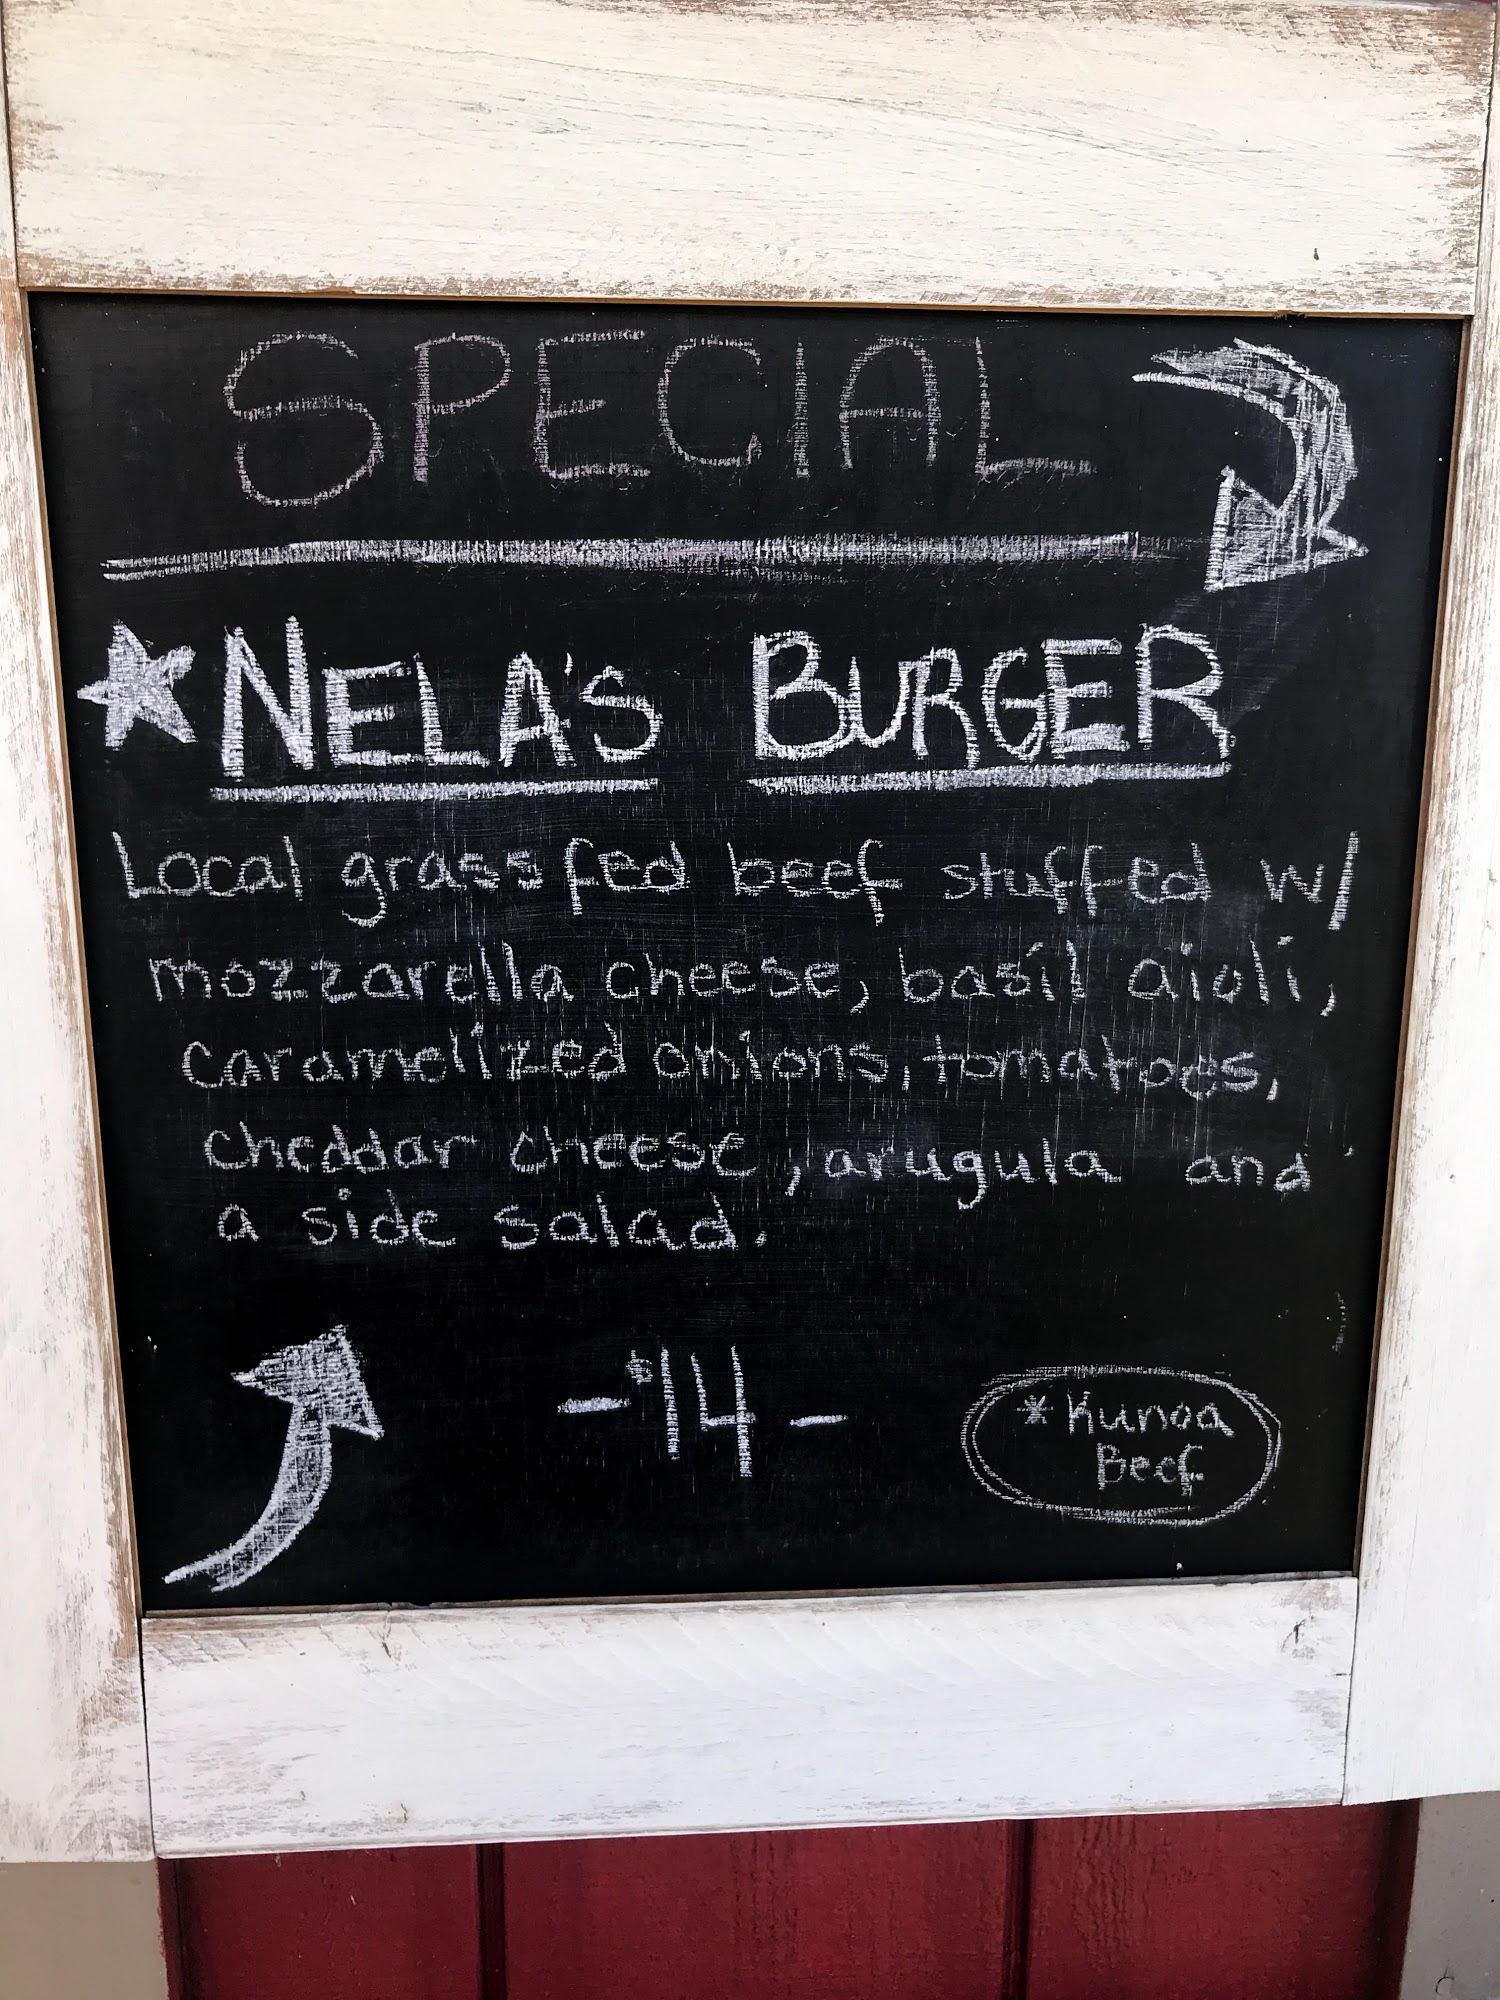 SPECIAL
NELA'S BURGER
Local grass fed beef stuffed w/
mozzarella cheese, basil aioli,
caramelized onions, tomatoes,
cheddar cheese, arugula and
a side salad.
-$14-
*Kunoa
Beef